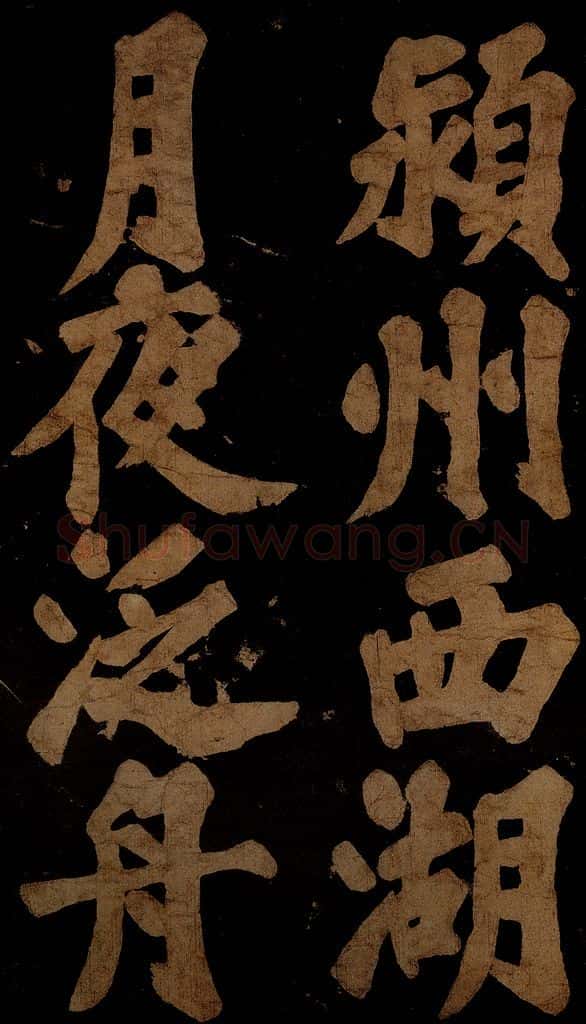 潁州西湖
月夜泛舟
Shufawang.CN